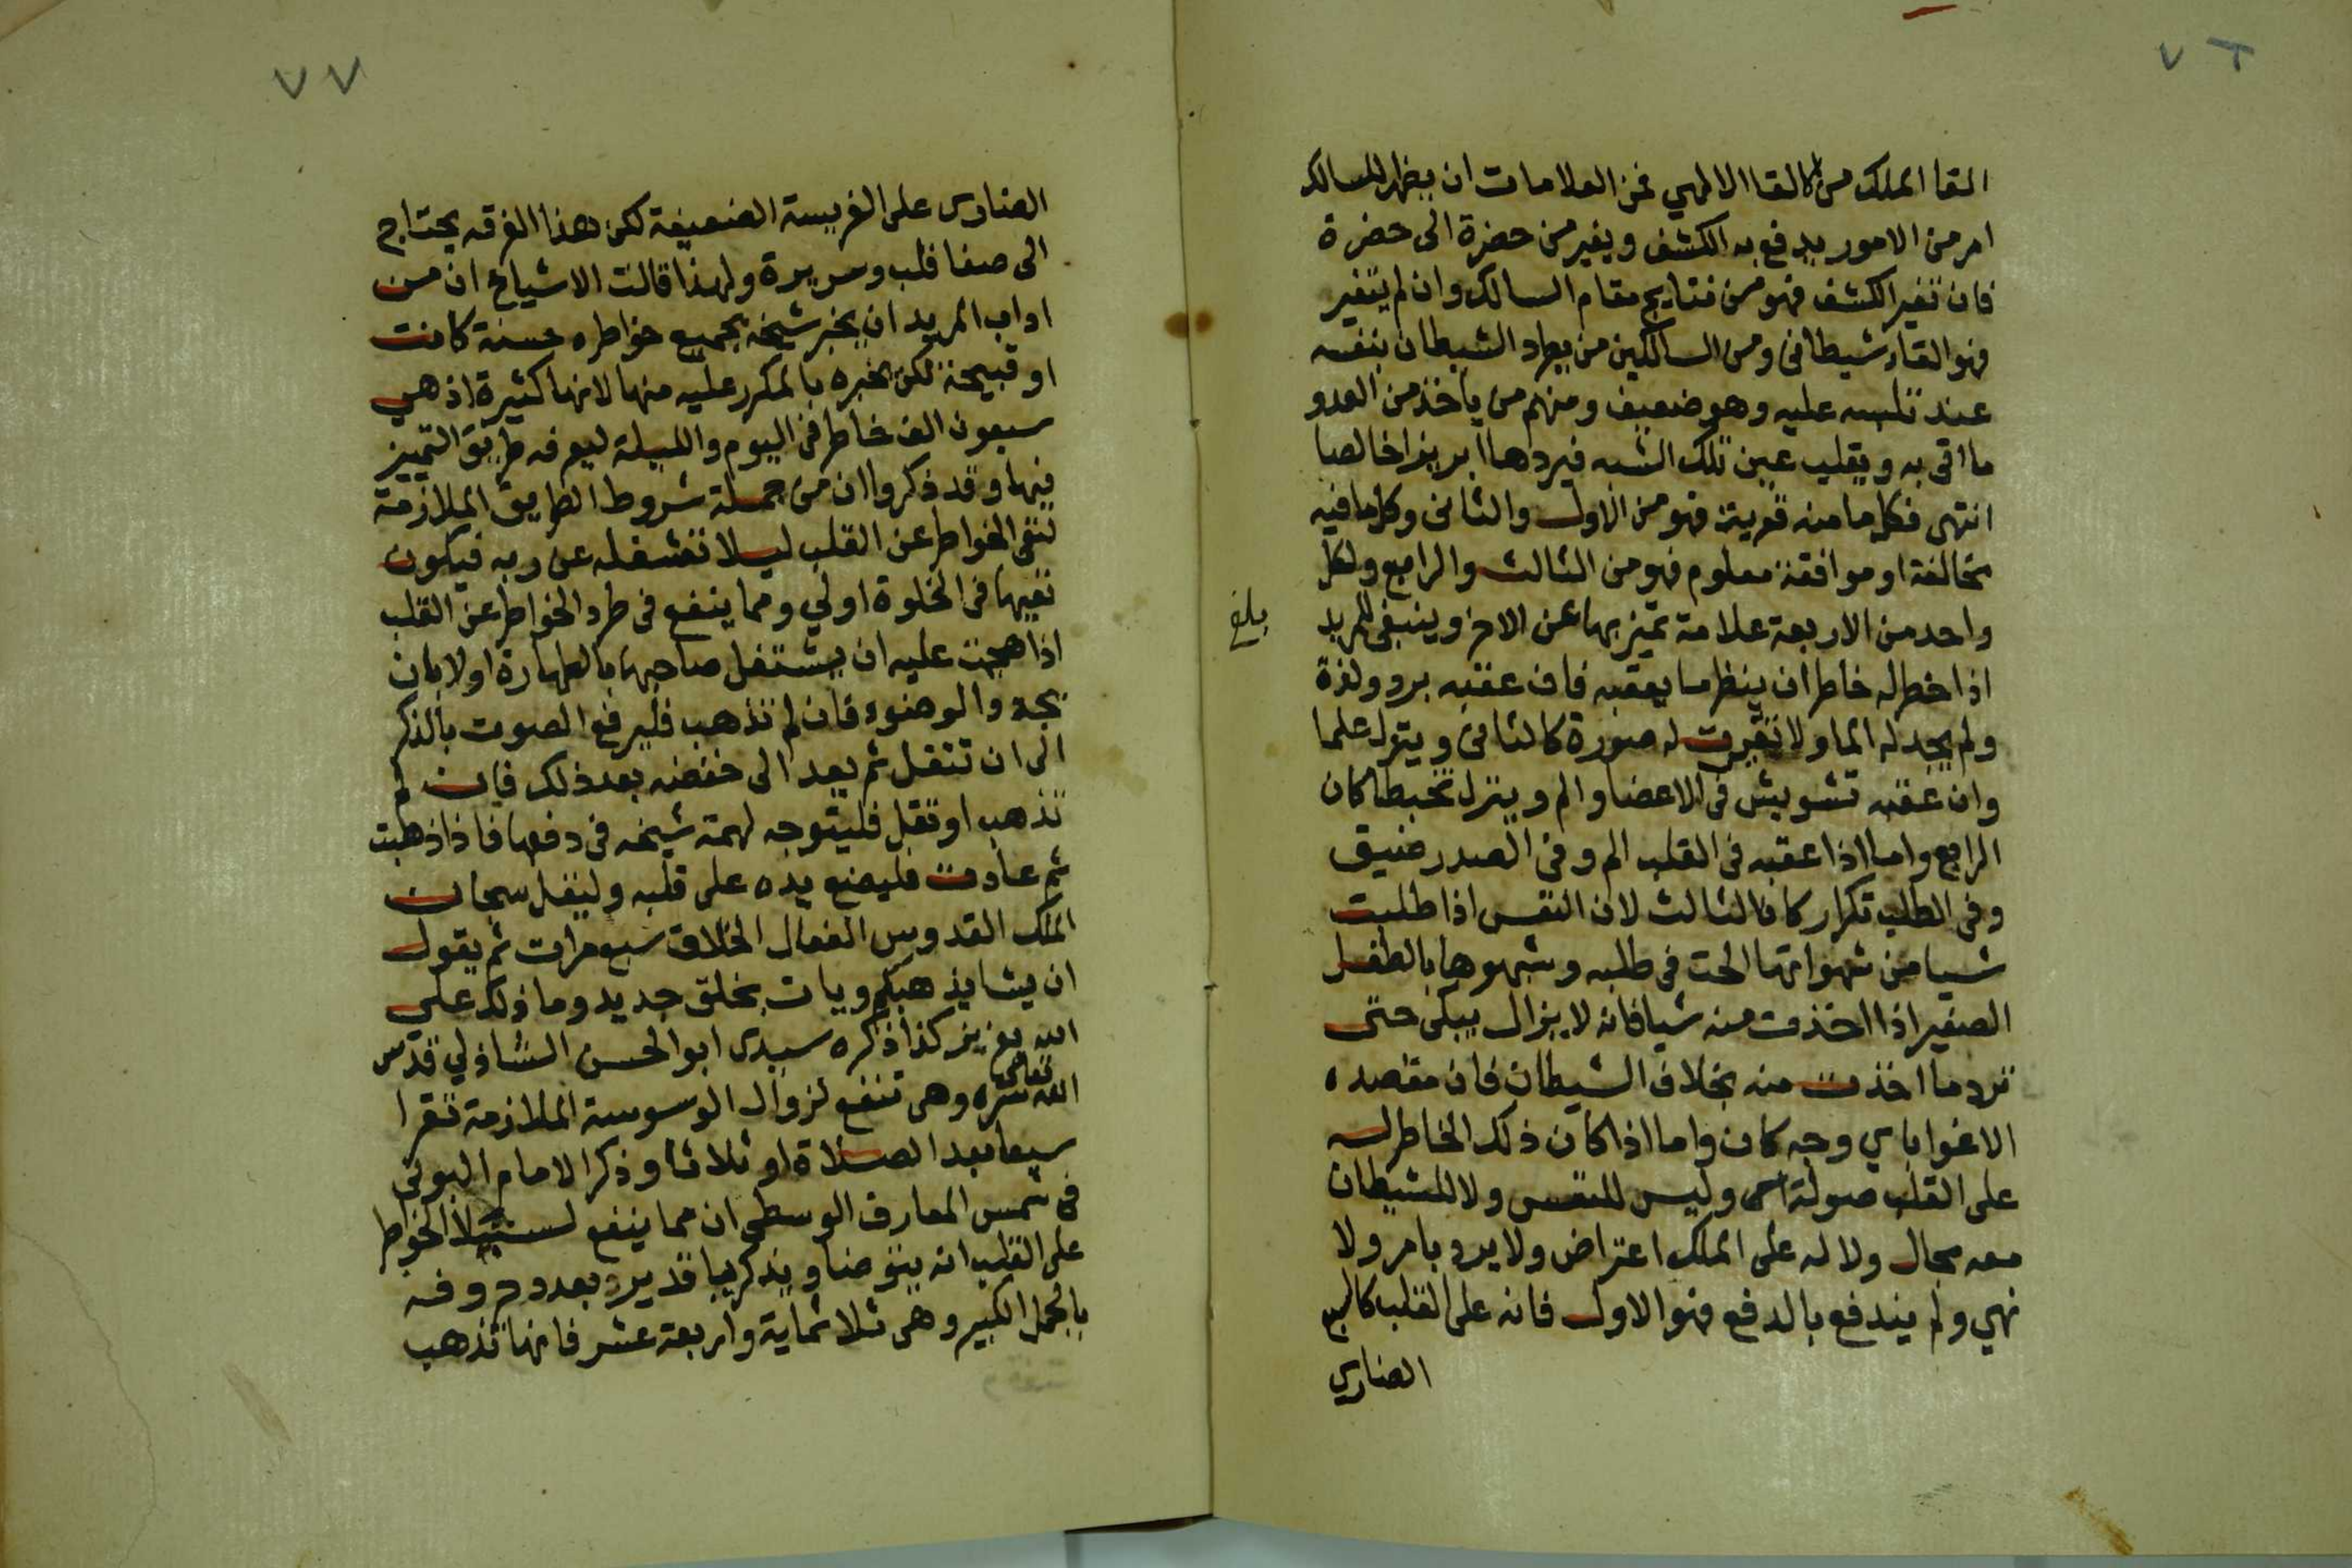 ٧٦
القا الملك من الالقا الالهي فمن العلامات ان يظهر للسالك
امر من الامور يدفع به الكشف ويغير من حضرة الى حضرة
فان تغير الكشف فهو من نتايج مقام السالك وان لم يتغير
فهو القاء شيطانى ومن السالكين من يطرد الشيطان بنفسه
عند تلبسه عليه وهو ضعيف ومنهم من ياخذ من العدو
ما اتى به ويقلب عين تلك الشبه فيردها ابريزا خالصا
انتهى فكل ما منه قوية فهو من الاول والثانى وكل ما فيه
مخالفة او موافقة معلوم فهو من الثالث والرابع ولكل
واحد من الاربعة علامة تميز بها عن الاخر وينبغى للمريد
بلغ
اذا خطر له خاطر ان ينظر ما يعقبه فان عقبه برد ولذة
ولم يجد له الما ولا تغيرت له صورة كالثانى ويترك علما
وان عقبه تشويش فى الاعضا والم وينزل تخبطا كان
الرابع واما اذا عقبه فى القلب الم وفى الصدر ضيق
وفى الطلب تكرار كان الثالث لان النفس اذا طلبت
شيا من شهواتها الحت فى طلبه وشبهوها بالطفل
الصغير اذا اخذت منه شيا فانه لا يزال يبكى حتى
ترد ما اخذت منه بخلاف الشيطان فان مقصده
الاغوا باي وجه كان واما اذا كان ذلك الخاطر له
على القلب صولة وليس للنفس ولا للشيطان
معه مجال ولا له على الملك اعتراض ولا يرد بامر ولا
نهي ولم يندفع بالدفع فهو الاول فانه على القلب كالسبع
الضاري
٧٧
الضارى على الفريسة الضعيفة لكن هذا الفرقه يحتاج
الى صفا قلب وسريرة ولهذا قالت الاشياخ ان من
اداب المريد ان يخبر شيخه بجميع خواطره حسنة كانت
او قبيحة لكن يخبره بالمكرر عليه منها لانها كثيرة اذ هي
سبعون الف خاطر فى اليوم والليلة ليعرفه طريق التمييز
فيها وقد ذكروا ان من جملة شروط الطريق الملازمة
لنفى الخواطر عن القلب ليلا تشغله عن ربه فيكون
نفيها فى الخلوة اولي ومما ينفع فى طرد الخواطر عن القلب
اذا هجت عليه ان يشتغل صاحبها بالطهارة اولا بان
يجدد الوضوء فان لم تذهب فليرفع الصوت بالذكر
الى ان تنقل ثم يعد الى خفضه بعد ذلك فان لم
تذهب او تقل فليتوجه لهمة شيخه فى دفعها فاذا ذهبت
ثم عادت فليضع يده على قلبه وليقل سبحان
الملك القدوس الفعال الخلاق سبع مرات ثم يقول
ان يشا يذهبكم ويات بخلق جديد وما ذلك على
الله بعزيز كذا ذكره سيدى ابو الحسن الشاذلي قدس
الله تعالى سره وهى تنفع لزوال الوسوسة الملازمة تقرا
سبعا بعد الصلاة او ثلاثا وذكر الامام البونى
فى شمس المعارف الوسطى ان مما ينفع لستيلا الخواطر
على القلب انه يتوضا ويذكر يا قدير بعدد حروفه
بالجمل الكبير وهى ثلاثماية واربعة عشر فانها تذهب